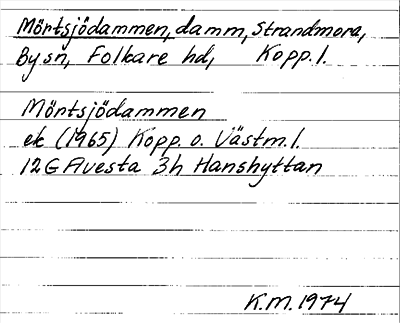 Mörtsjödammen, damm, Strandmora,
By sn, Folkare hd, Kopp. l.
Mörtsjödammen
ek (1965) Kopp. o. Västm. l.
12 G Avesta 3h Hanshyttan
K.M. 1974